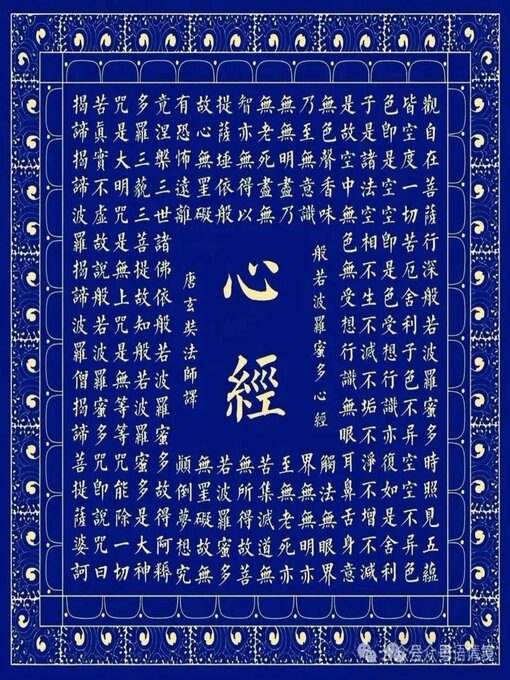 觀自在菩薩行深般若波羅蜜多時照見五蘊
皆空度一切苦厄舍利子色不异空空不异色
色即是空空即是色受想行識亦復如是舍利
子是諸法空相不生不滅不垢不淨不增不減
是故空中無色無受想行識無眼耳鼻舌身意
無色聲香味
觸法無眼界
乃至無意識
界無無明亦
無無明盡乃
至無老死亦
無老死盡無
苦集滅道無
智亦無得以
無所得故菩
提薩埵依般
若波羅蜜多
故心無罣礙
無罣礙故無
有恐怖遠離
顛倒夢想究
竟涅槃三世諸佛依般若波羅蜜多故得阿耨
多羅三藐三菩提故知般若波羅蜜多是大神
咒是大明咒是無上咒是無等等咒能除一切
苦真實不虛故說般若波羅蜜多咒即說咒曰
揭諦揭諦波羅揭諦波羅僧揭諦菩提薩婆訶
般若波羅蜜多心經
心經
唐玄奘法師譯